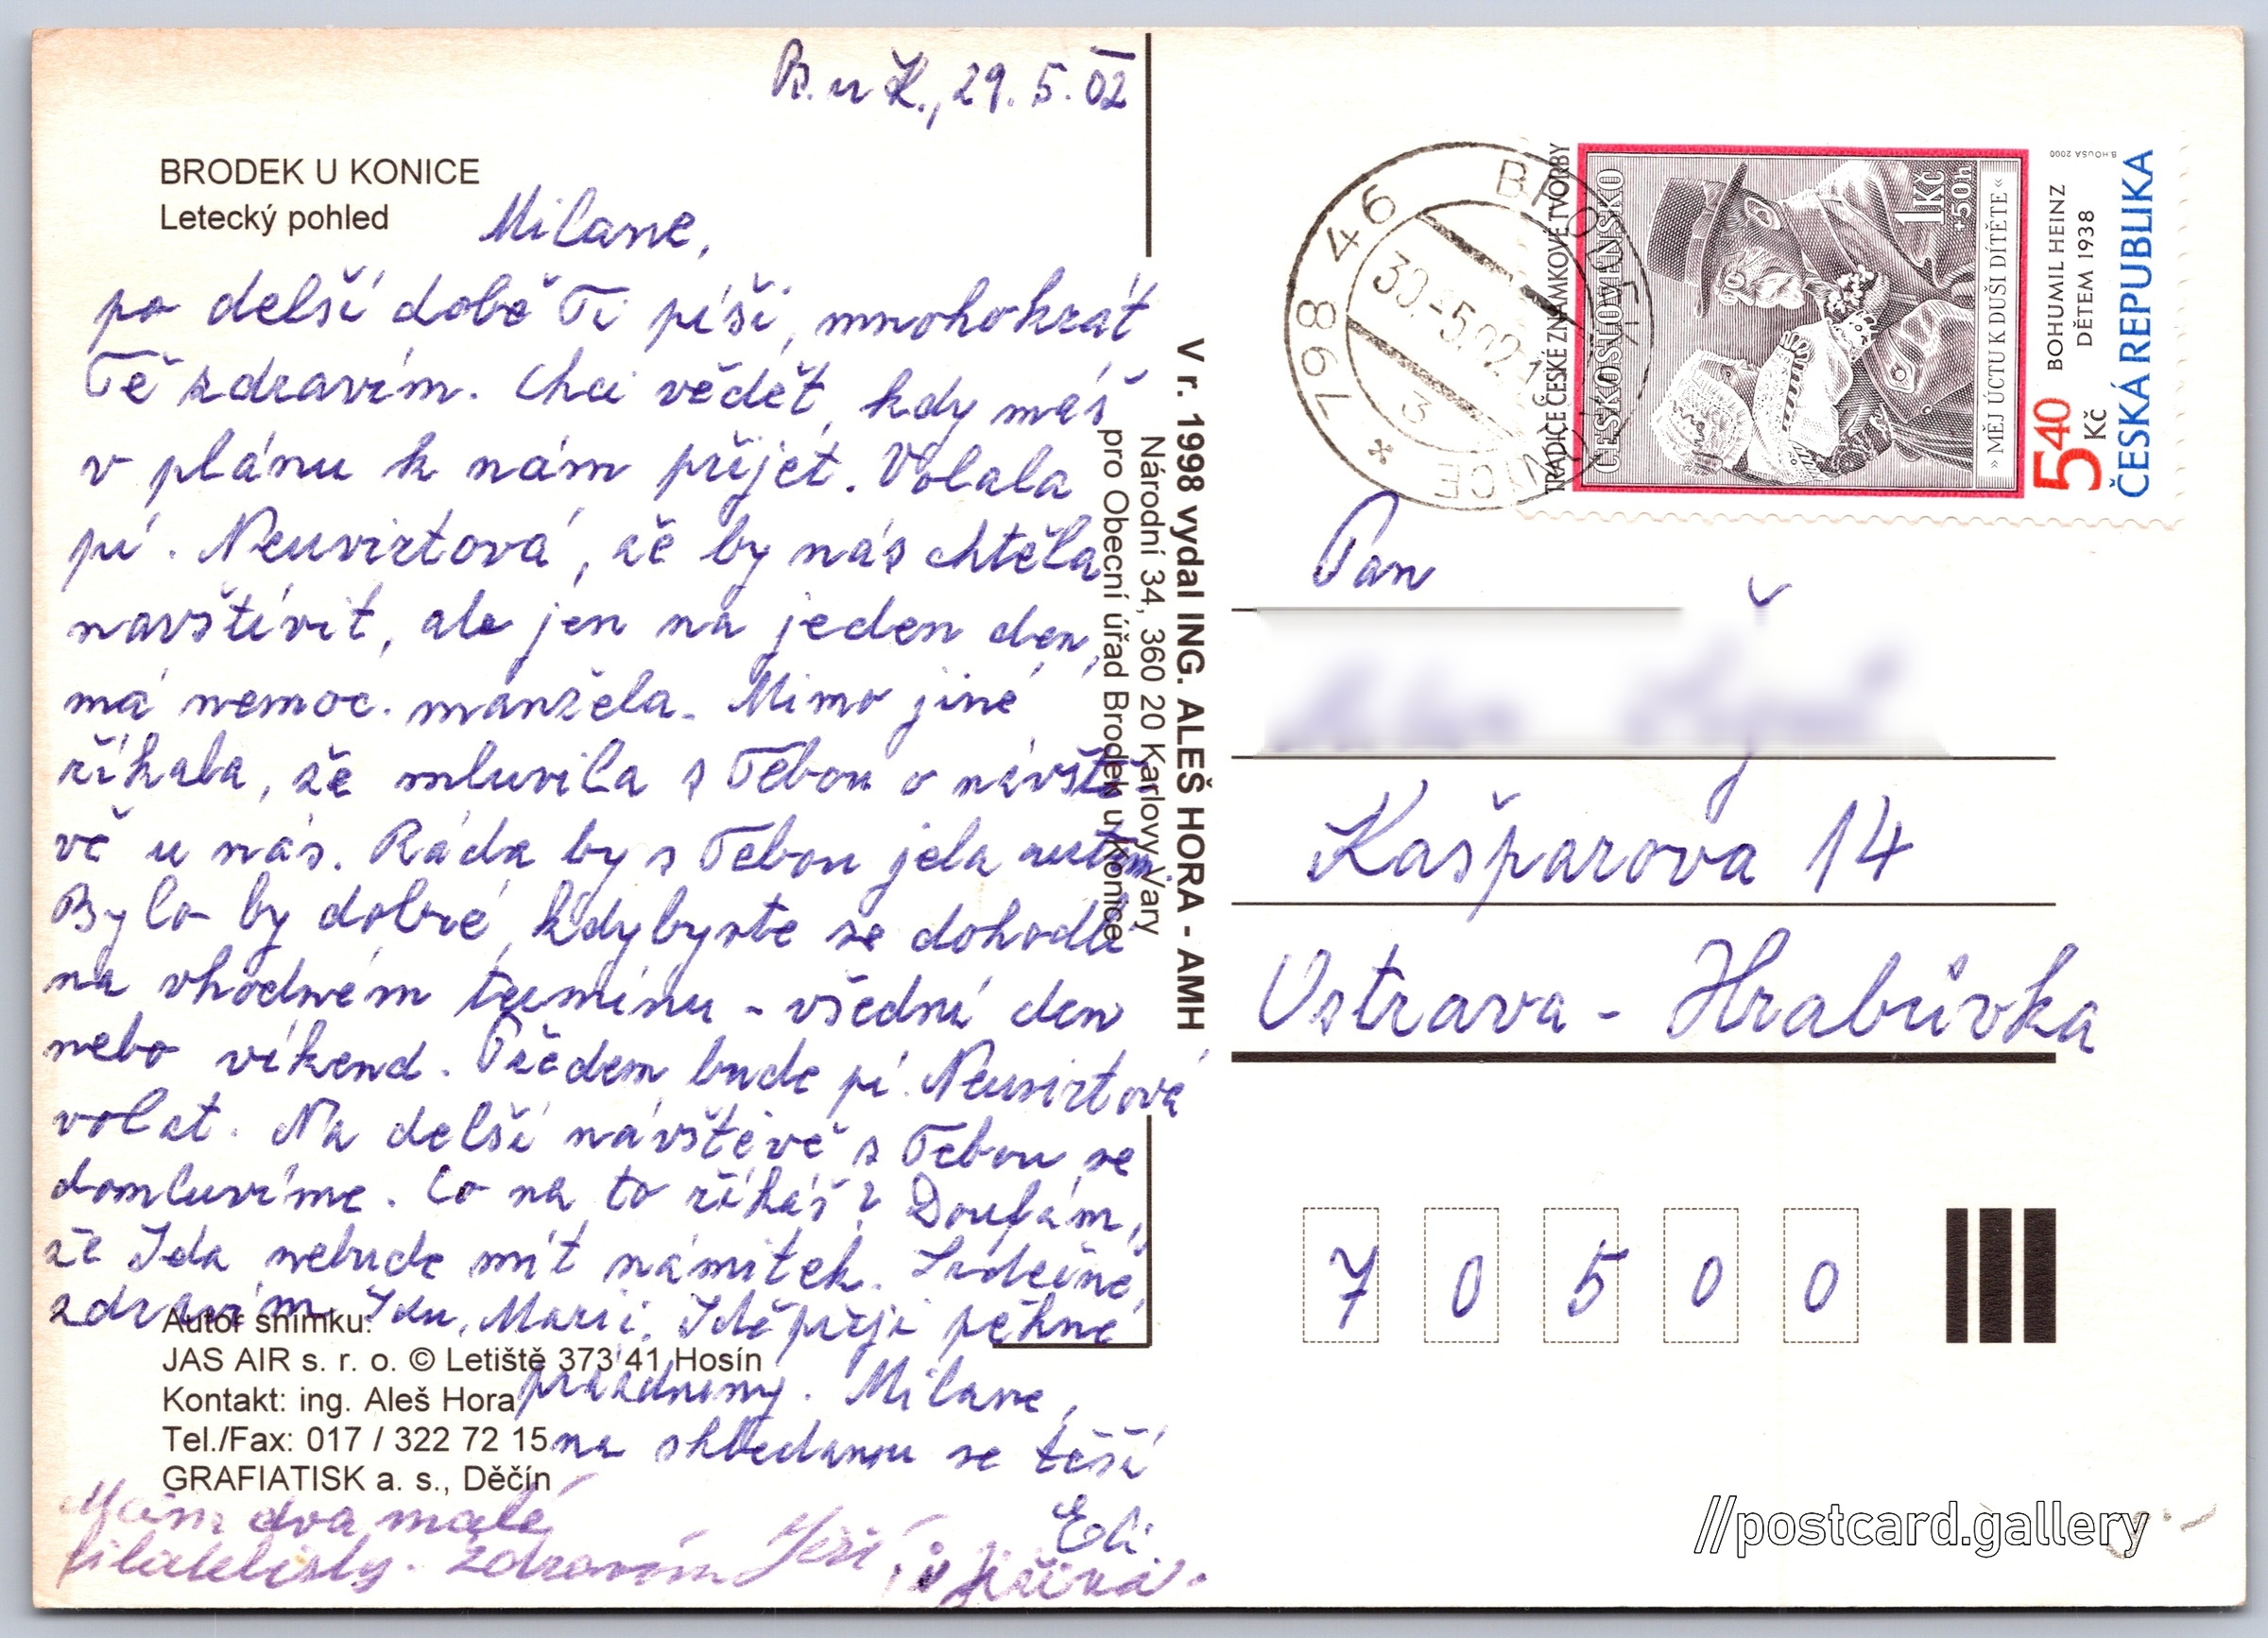 B. u K., 29. 5. 02
BRODEK U KONICE
Letecký pohled
Milane,
po delší době Ti píši, mnohokrát
Tě zdravím. Chci vědět, kdy máš
v plánu k nám přijet. Volala
pí. Neuvirtová, že by nás chtěla
navštívit, ale jen na jeden den,
má nemoc. manžela. Mimo jiné
říkala, že mluvila s Tebou o návště
vě u nás. Ráda by s Tebou jela autem.
Bylo by dobré, kdybyste se dohodli
na vhodném termínu - všední den
nebo víkend. Předem bude pí. Neuvirtová
volat. Na delší návštěvě s Tebou se
domluvíme. Co na to říkáš? Doufám,
že Ida nebude mít námitek. Srdečně
zdravím Idu, Marii. Idě přeji pěkné
prázdniny. Milane,
na shledanou se těší
Eli.
Mám dva malé
filatelisty. Zdravím Těší
Jiřina.
Autor snímku:
JAS AIR s. r. o. © Letiště 373 41 Hosín
Kontakt: ing. Aleš Hora
Tel./Fax: 017 / 322 72 15
GRAFIATISK a. s., Děčín
V r. 1998 vydal ING. ALEŠ HORA - AMH
Národní 34, 360 20 Karlovy Vary
pro Obecní úřad Brodek u Konice
798 46 BRODEK U KONICE
30.-5.02
3
*
TRADICE ČESKÉ ZNÁMKOVÉ TVORBY
ČESKOSLOVENSKO
1 Kč
+50h
» MĚJ ÚCTU K DUŠI DÍTĚTE «
BOHUMIL HEINZ
DĚTEM 1938
B.HOUSA 2000
540
Kč
ČESKÁ REPUBLIKA
Pan
Kašparova 14
Ostrava - Hrabůvka
7 0 5 0 0
//postcard.gallery